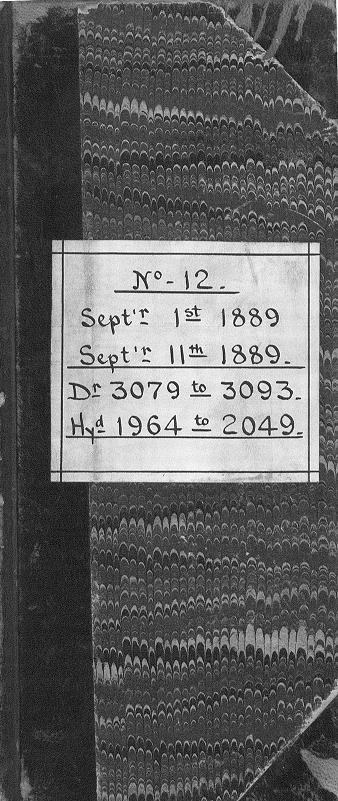 Nº-12.
Sept'r 1st 1889
Sept'r 11th 1889.
Dr 3079 to 3093.
Hyd 1964 to 2049.